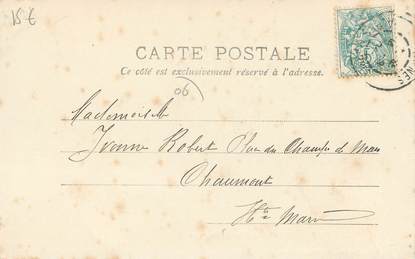 15 €
CARTE POSTALE
Ce côté est exclusivement réservé à l'adresse.
06
Mademoiselle
Yvonne Robert Place du Champ de Mars
Chaumont
Hte Marne